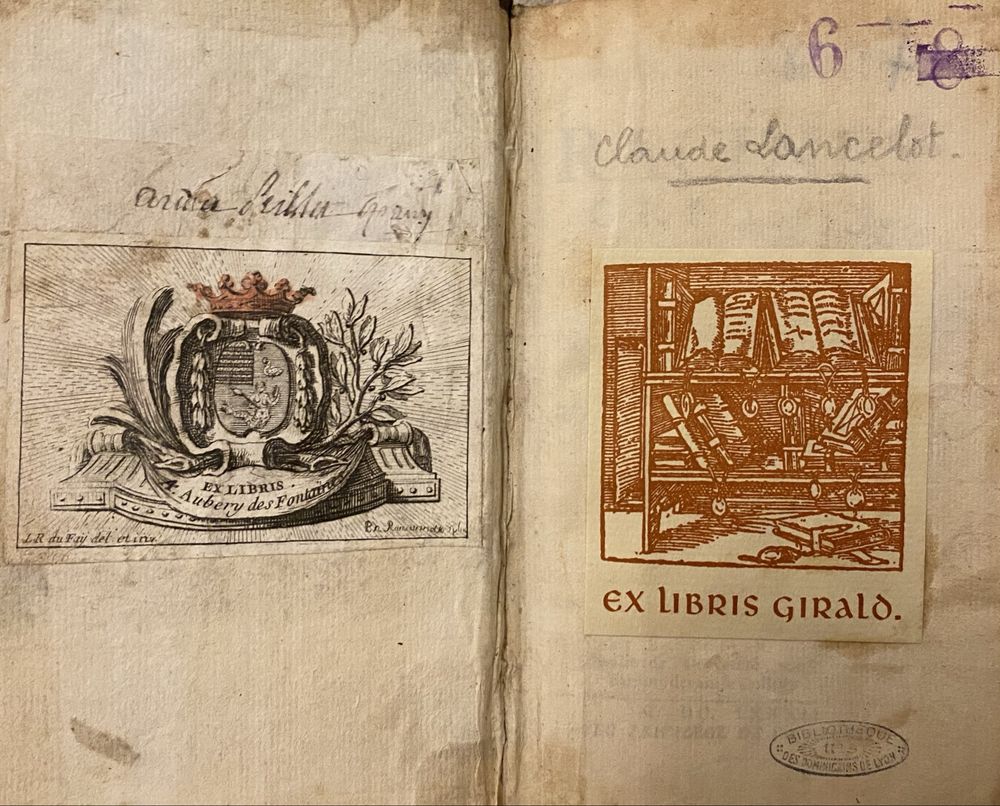 EX LIBRIS.
A. Aubery des Fontaines
L R du Faÿ del
6 8
Claude Lancelot.
EX LIBRIS GIRALD.
BIBLIOTHEQUE
DES DOMINICAINS DE LYON